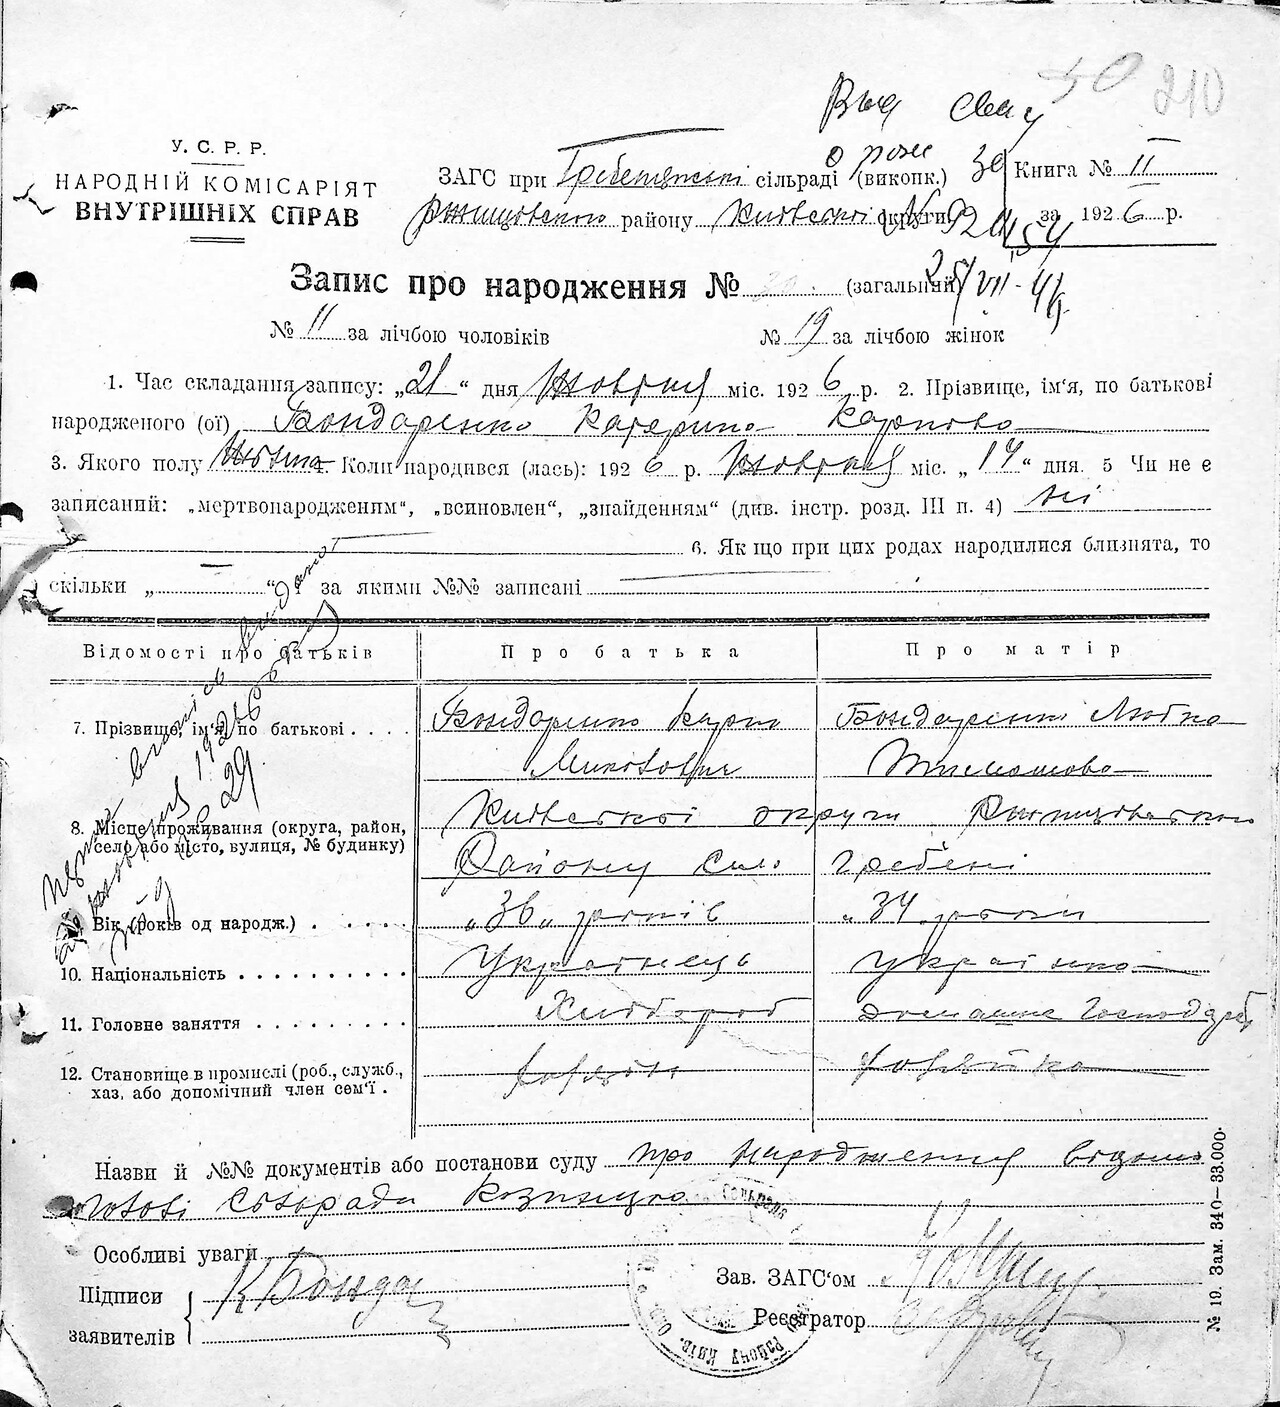 50 210
Выд свид
о рожд
У. С. Р. Р.
НАРОДНІЙ КОМІСАРІЯТ
ВНУТРІШНІХ СПРАВ
ЗАГС при Гребенянській сільраді (виконк.)
Ржищовського району Київської округи
Книга № II
за 1926 р.
Запис про народження № 30. (загальний)
25/VII-
№ 11 за лічбою чоловіків № 19 за лічбою жінок
1. Час складання запису: „21“ дня Жовтня міс. 1926 р. 2. Прізвище, ім'я, по батькові
народженого (ої) Бондаренко Катерина Карпова
3. Якого полу Жіноча 4. Коли народився (лась): 1926 р. Жовтня міс. „14“ дня. 5 Чи не є
записаний: „мертвонародженим“, „всиновлен“, „знайденням“ (див. інстр. розд. III п. 4) ні
6. Як що при цих родах народилися близнята, то
скільки „ — “ за якими №№ записані
Відомості про батьків Про батька Про матір
7. Прізвище, ім'я, по батькові . . . . Бондаренко Карпо Бондаренко Любка
Тимошова
8. Місце проживання (округа, район, село або місто, вулиця, № будинку) Київської округи Ржищівського
Району село Гребені
Вік (років од народж.) . . . . . „36„ років „34„ роки
10. Національність . . . . . . . . . . Українець Українка
11. Головне заняття . . . . . . . . . Хлібороб Домашнє Господар
12. Становище в промислі (роб., служб., хаз. або допомічний член сем'ї . хазяїн хазяйка
Назви й №№ документів або постанови суду про народження відомо
голові сільради
Особливі уваги
Підписи
заявителів
К Бонда
Зав. ЗАГС'ом
Реєстратор
Району Київ.
№ 19. Зам. 340—33.000.